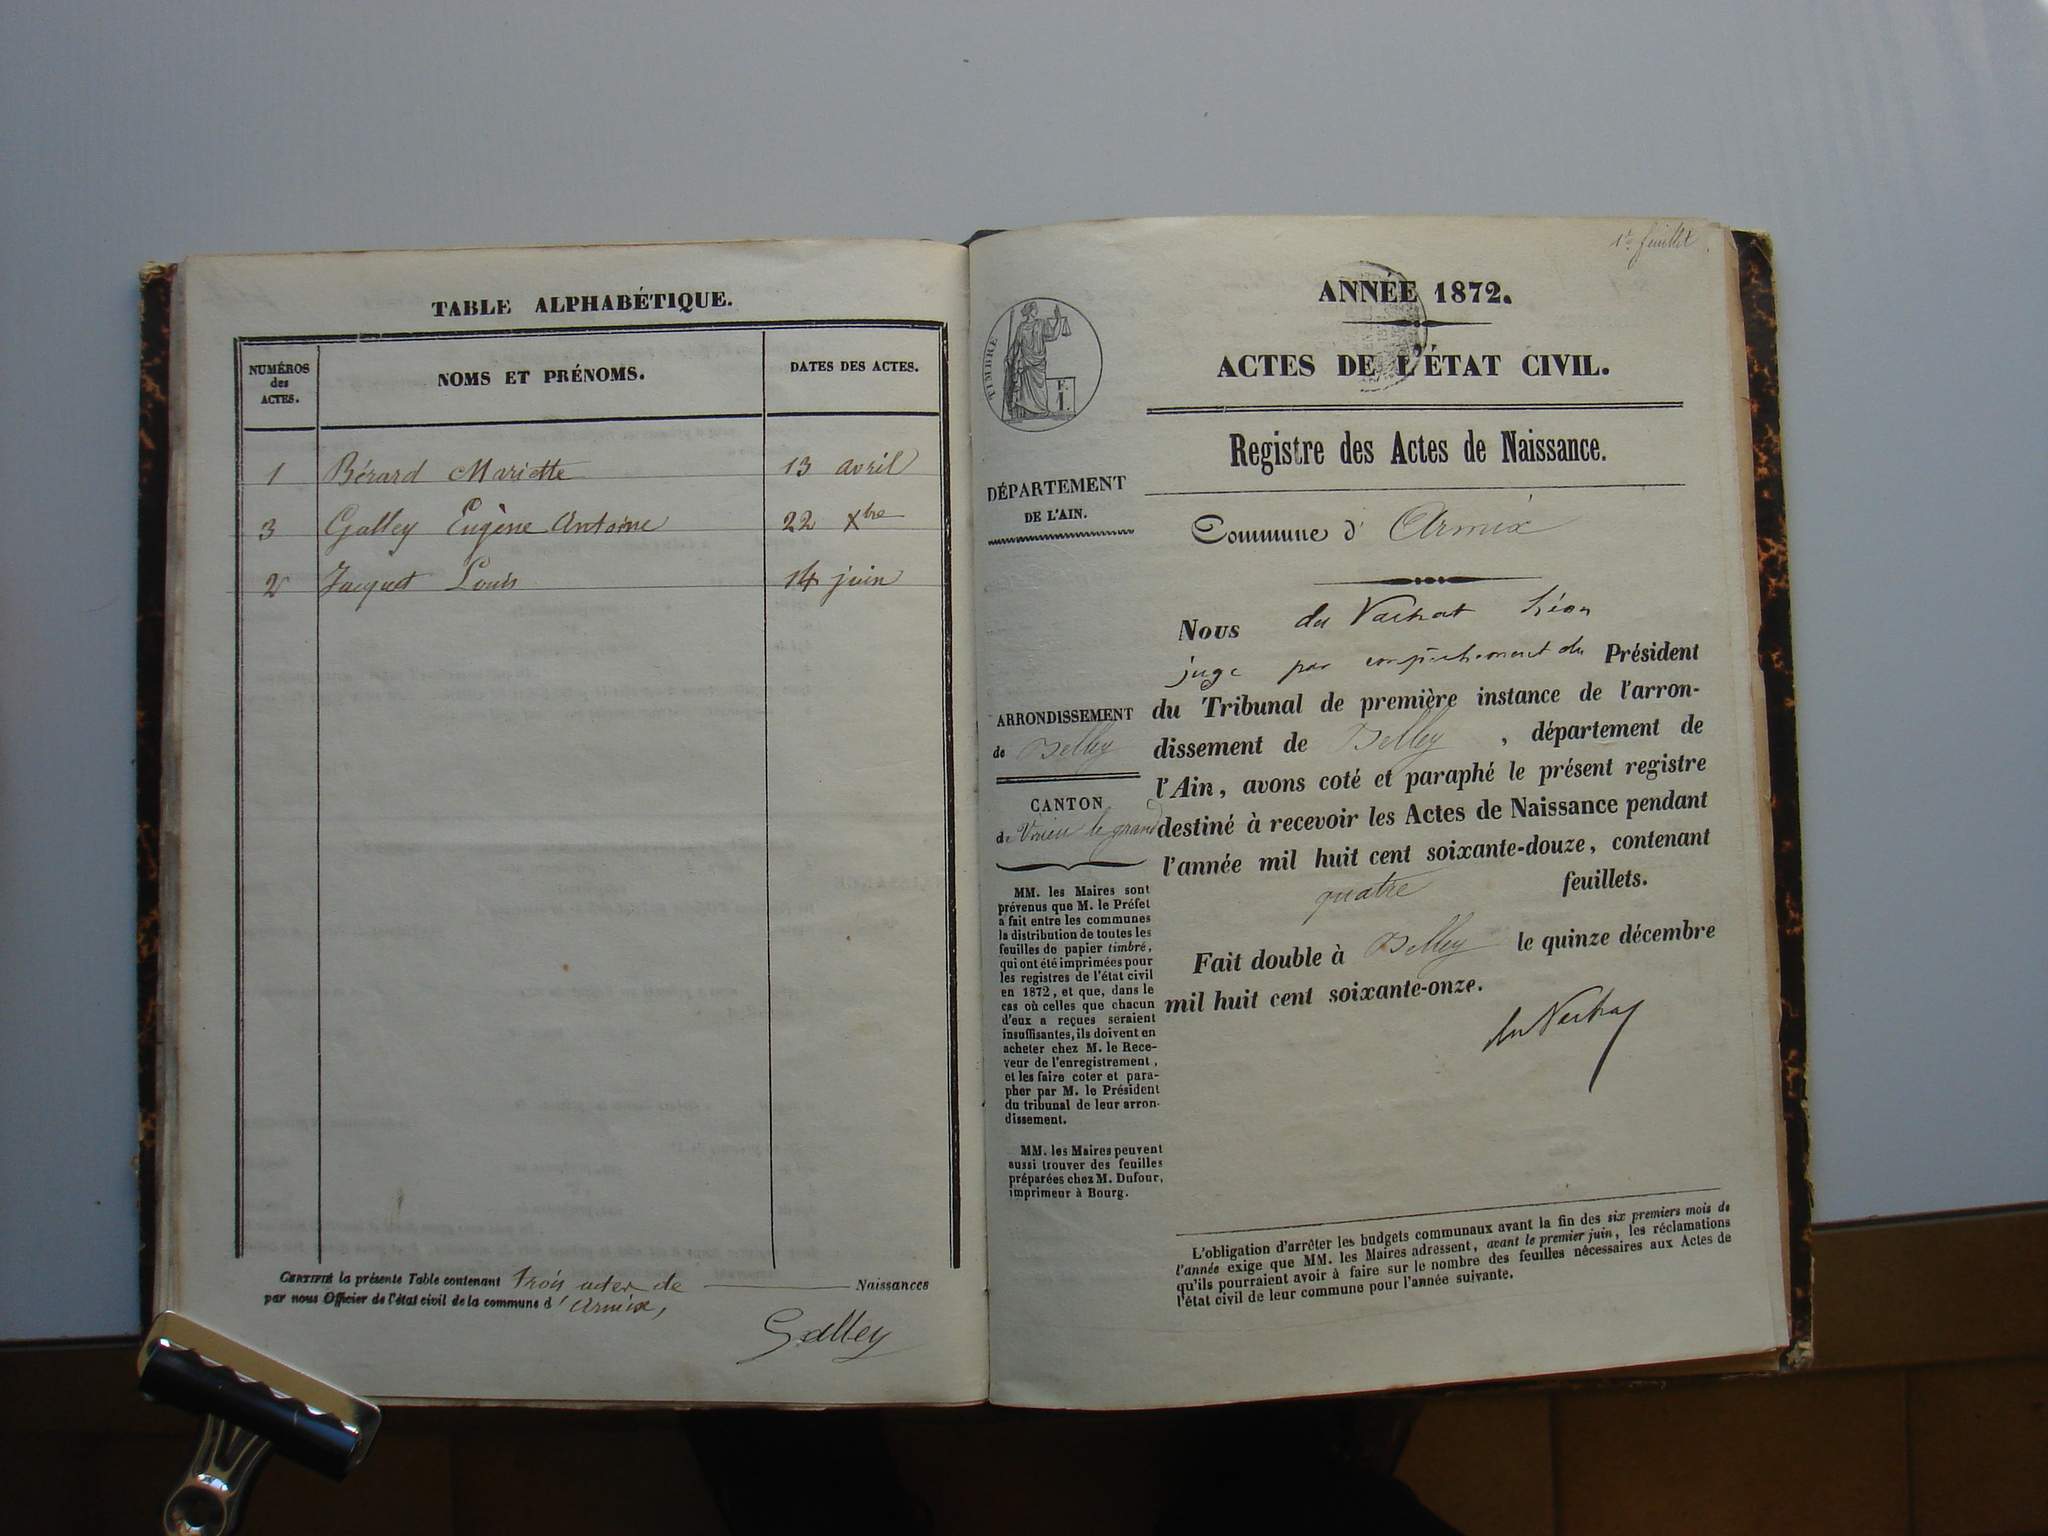 TABLE ALPHABÉTIQUE.
NUMÉROS
des
ACTES.
NOMS ET PRÉNOMS.
DATES DES ACTES.
1 Bérard Mariette 13 avril
3 Galley Eugène Antoine 22 Xbre
2 Jacquet Louis 14 juin
CERTIFIÉ la présente Table contenant trois actes de Naissances
par nous Officier de l'état civil de la commune d' Armix,
Galley
1er feuillet
TIMBRE
F.
I.
DÉPARTEMENT
DE L'AIN.
ARRONDISSEMENT
de Belley
CANTON
de Virieu le grand
MM. les Maires sont
prévenus que M. le Préfet
a fait entre les communes
la distribution de toutes les
feuilles de papier timbré,
qui ont été imprimées pour
les registres de l'état civil
en 1872, et que, dans le
cas où celles que chacun
d'eux a reçues seraient
insuffisantes, ils doivent en
acheter chez M. le Rece-
veur de l'enregistrement,
et les faire coter et para-
pher par M. le Président
du tribunal de leur arron-
dissement.
MM. les Maires peuvent
aussi trouver des feuilles
préparées chez M. Dufour,
imprimeur à Bourg.
ANNÉE 1872.
ACTES DE L'ÉTAT CIVIL.
Registre des Actes de Naissance.
Commune d' Armix
Nous du Vachat Léon
juge par empêchement du Président
du Tribunal de première instance de l'arron-
dissement de Belley, département de
l'Ain, avons coté et paraphé le présent registre
destiné à recevoir les Actes de Naissance pendant
l'année mil huit cent soixante-douze, contenant
quatre feuillets.
Fait double à Belley le quinze décembre
mil huit cent soixante-onze.
du Vachat
L'obligation d'arrêter les budgets communaux avant la fin des six premiers mois de
l'année exige que MM. les Maires adressent, avant le premier juin, les réclamations
qu'ils pourraient avoir à faire sur le nombre des feuilles nécessaires aux Actes de
l'état civil de leur commune pour l'année suivante.